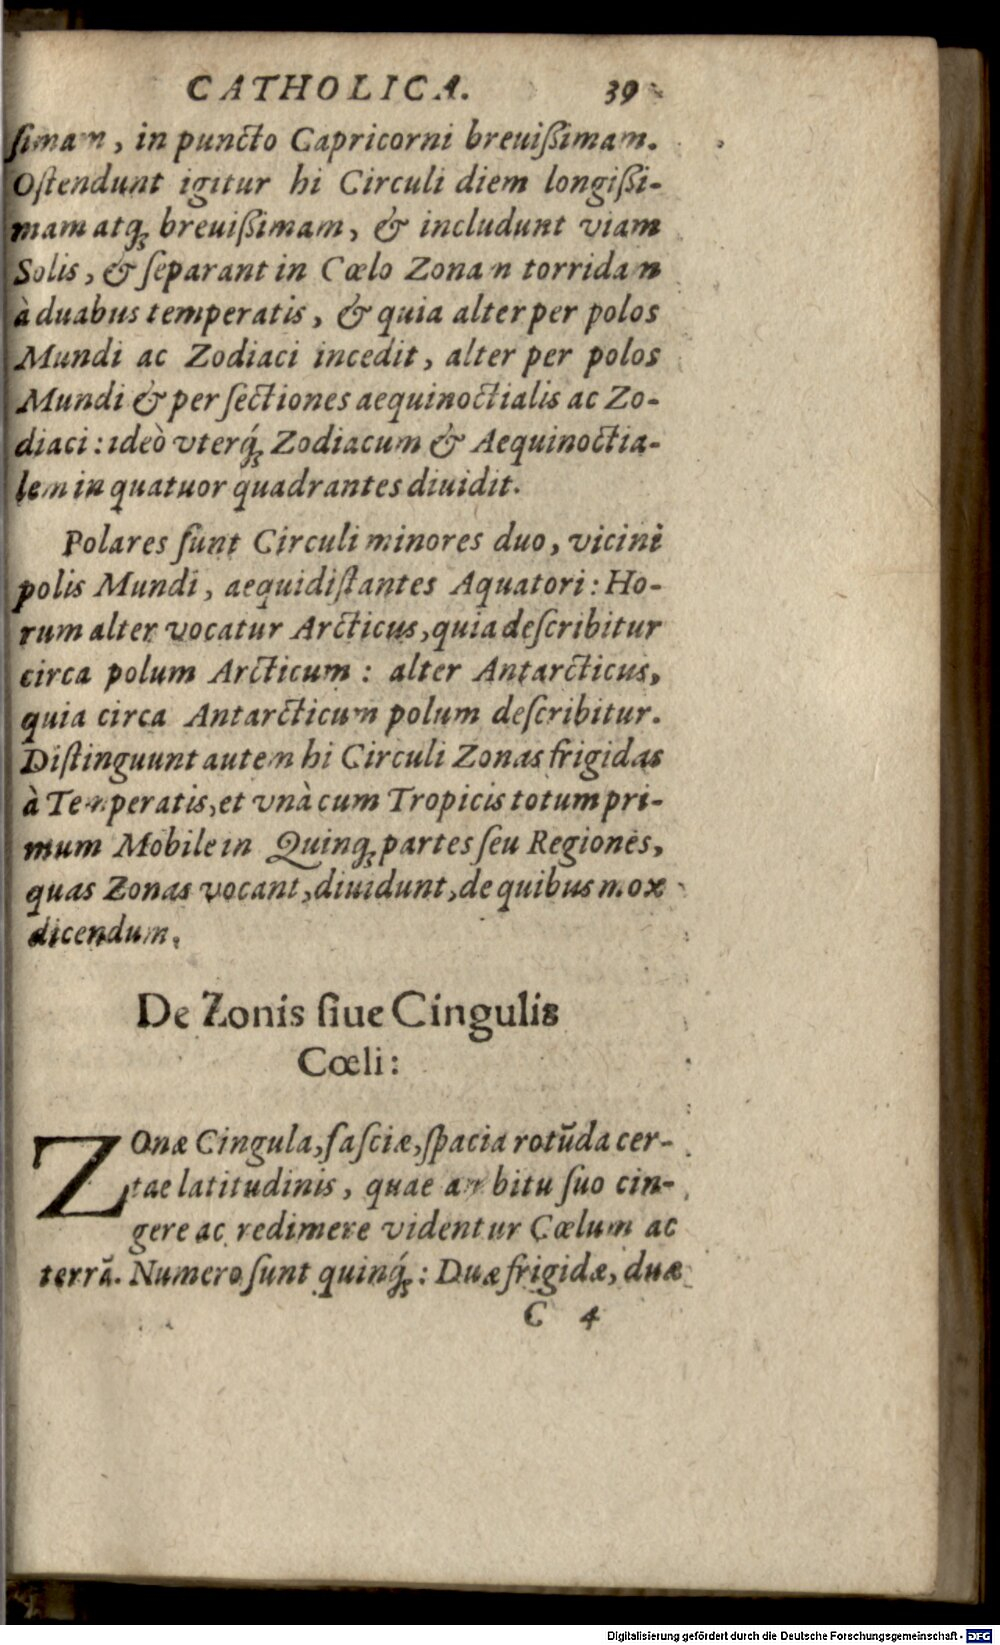 CATHOLICA. 39
ſimam, in puncto Capricorni breuiſsimam.
Oſtendunt igitur hi Circuli diem longiſsi-
mam atq́; breuiſsimam, & includunt viam
Solis, & ſeparant in Cœlo Zonam torridam
à duabus temperatis, & quia alter per polos
Mundi ac Zodiaci incedit, alter per polos
Mundi & per ſectiones aequinoctialis ac Zo-
diaci: ideò vterq́; Zodiacum & Aequinoctia-
lem in quatuor quadrantes diuidit.
Polares ſunt Circuli minores duo, vicini
polis Mundi, aequidiſtantes Aquatori: Ho-
rum alter vocatur Arcticus, quia deſcribitur
circa polum Arcticum: alter Antarcticus,
quia circa Antarcticum polum deſcribitur.
Diſtinguunt autem hi Circuli Zonas frigidas
à Temperatis, et vnà cum Tropicis totum pri-
mum Mobile in Quinq; partes ſeu Regiones,
quas Zonas vocant, diuidunt, de quibus mox
dicendum.
De Zonis ſiue Cingulis
Cœli:
ZOnæ Cingula, faſciæ, ſpacia rotũda cer-
tae latitudinis, quae ambitu ſuo cin-
gere ac redimere videntur Cœlum ac
terrã. Numero ſunt quinq́;: Duæ frigidæ, duæ
C 4
Digitalisierung gefördert durch die Deutsche Forschungsgemeinschaft - DFG